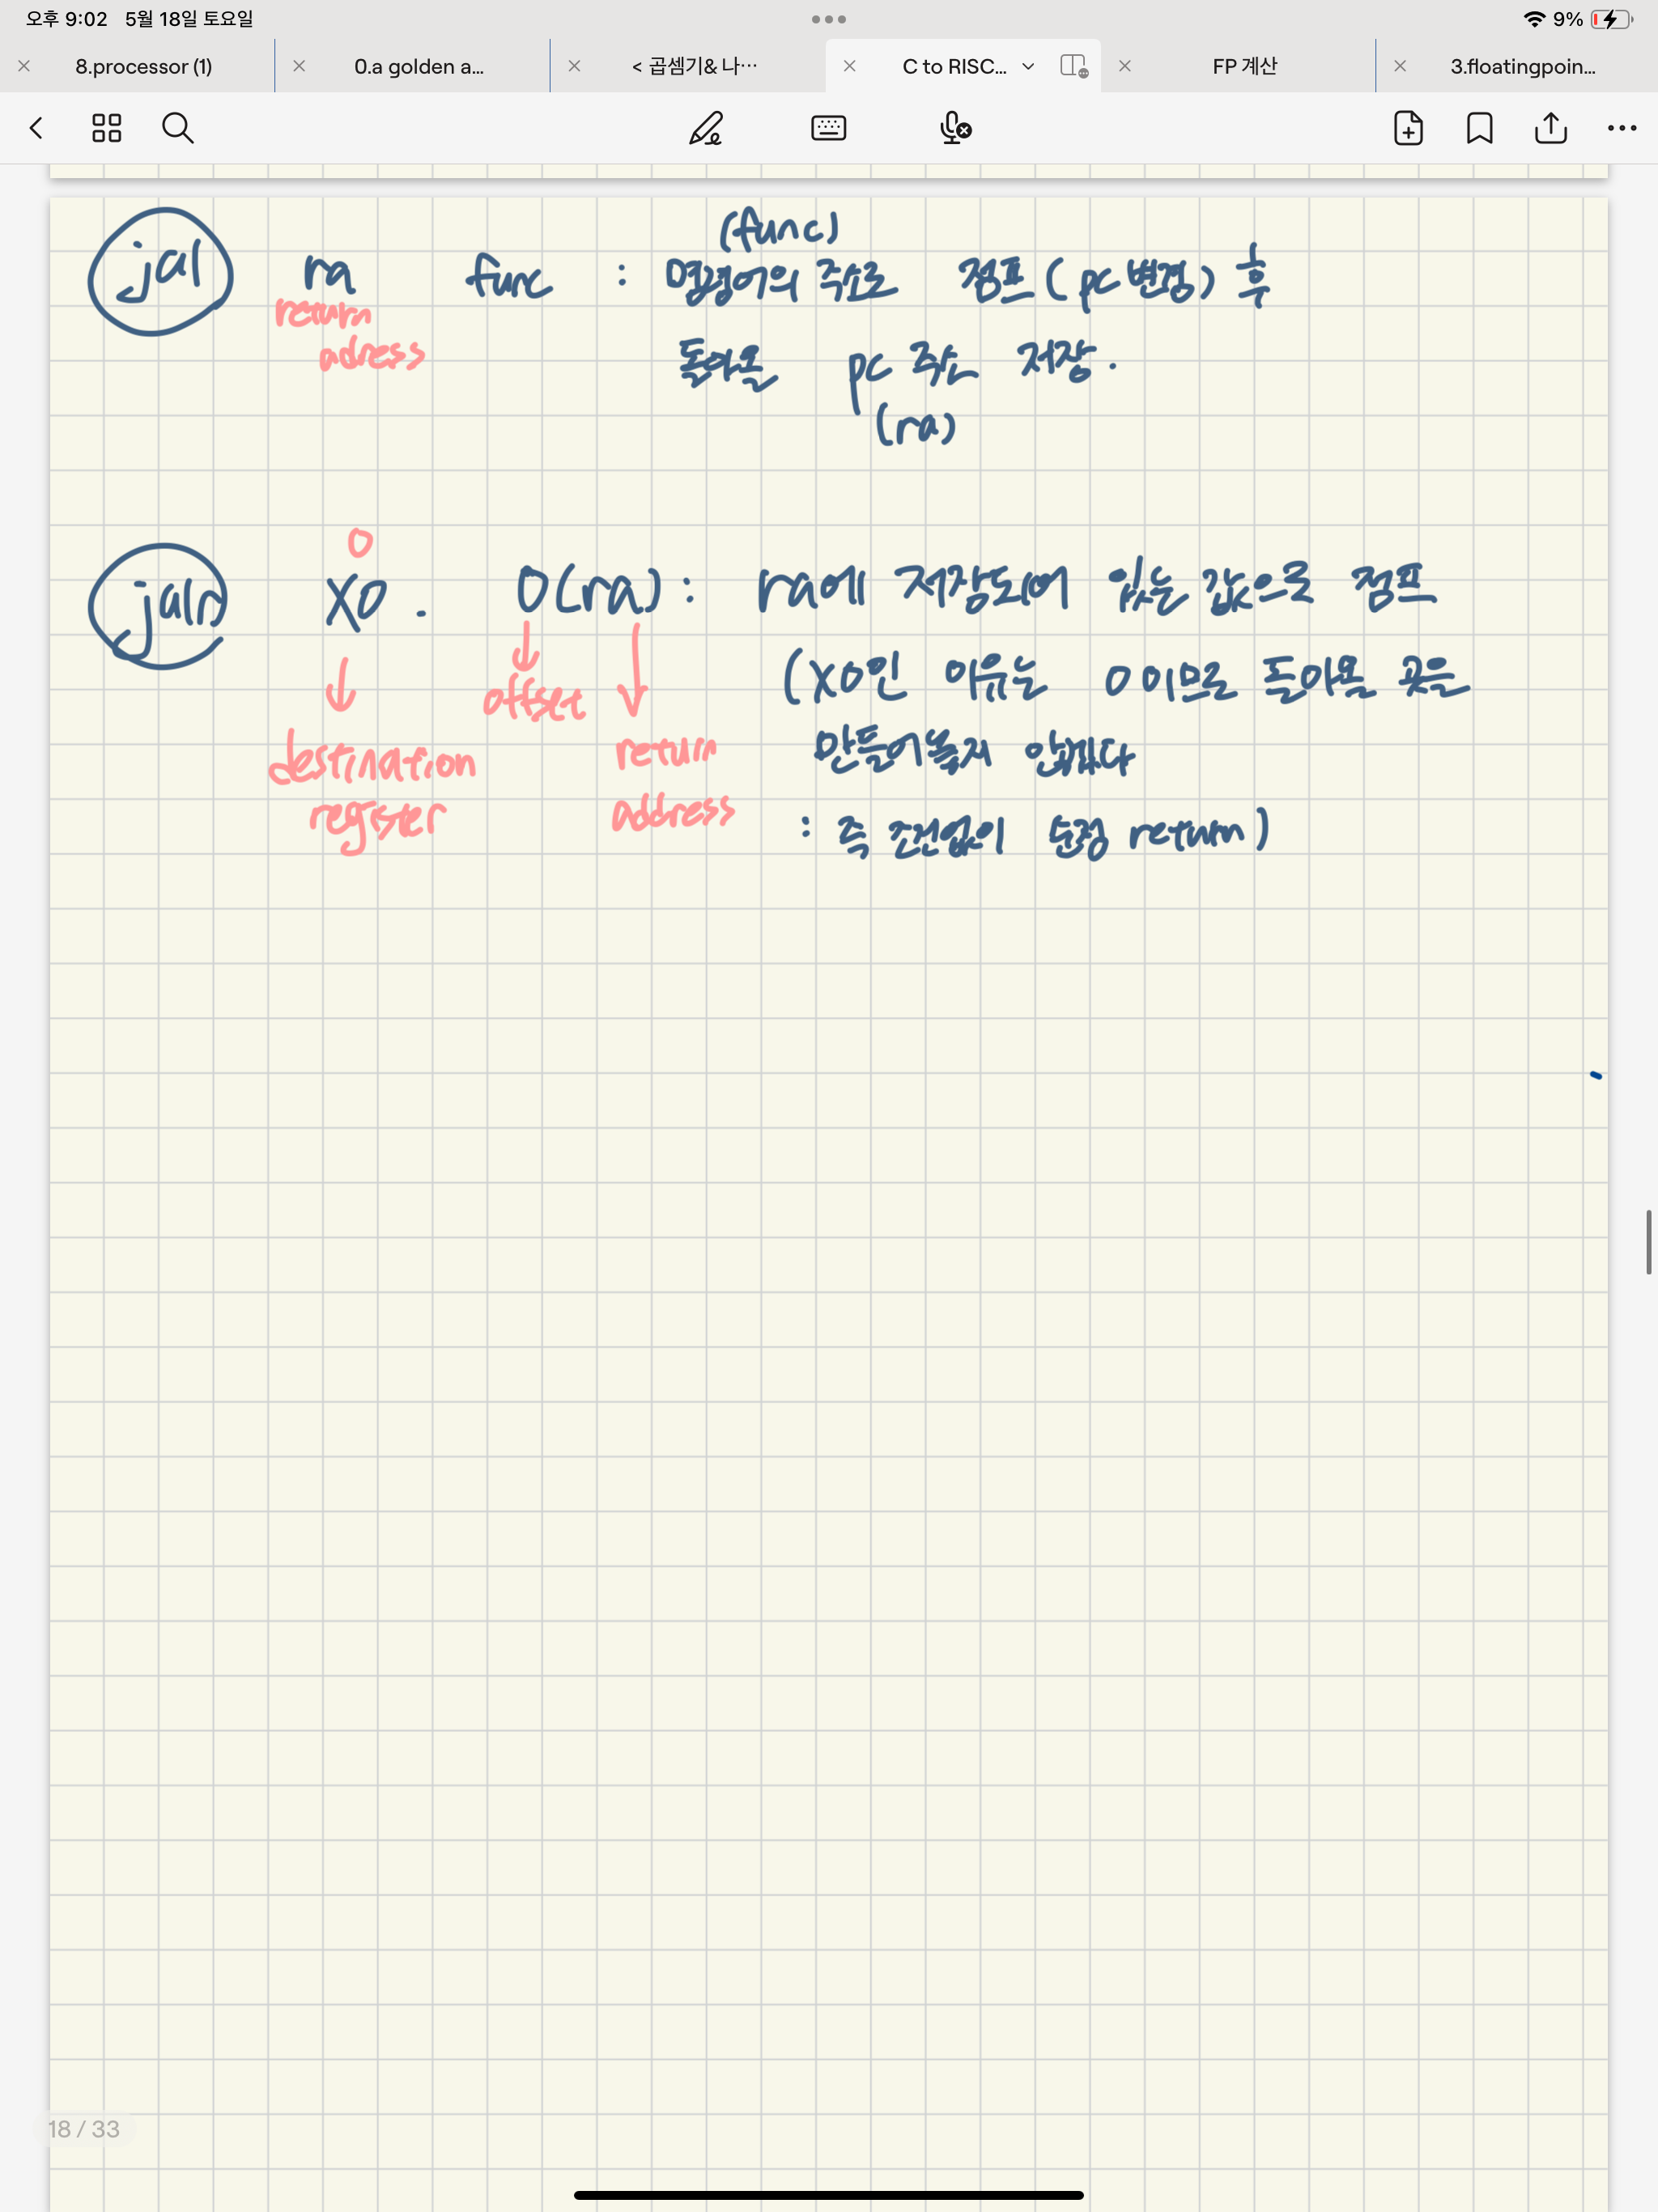 오후 9:02 5월 18일 토요일
9%
8.processor (1)
0.a golden a...
< 곱셈기& 나…
C to RISC...
FP 계산
3.floatingpoin...
(func)
jal ra func : 명령어의 주소로 점프 ( pc 변경) 후
return
adress
돌아올 pc 주소 저장.
(ra)
0
jalr X0. 0(ra): ra에 저장되어 있는 값으로 점프
offset
(X0인 이유는 0 이므로 돌아올 곳을
destination
register
return
address
만들어놓지 않겠다
: 즉 조건없이 순정 return)
18 / 33